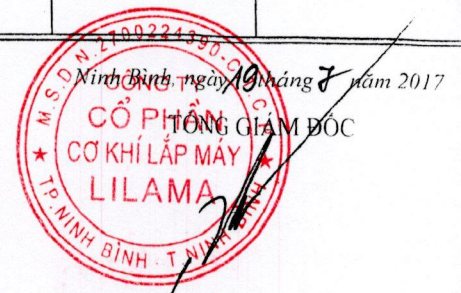 Ninh Bình, ngày 19 tháng 7 năm 2017
TỔNG GIÁM ĐỐC
M.S.D.N.2700224390-C.T.C.P
CÔNG TY
CỔ PHẦN
CƠ KHÍ LẮP MÁY
LILAMA
TP.NINH BÌNH - T.NINH BÌNH